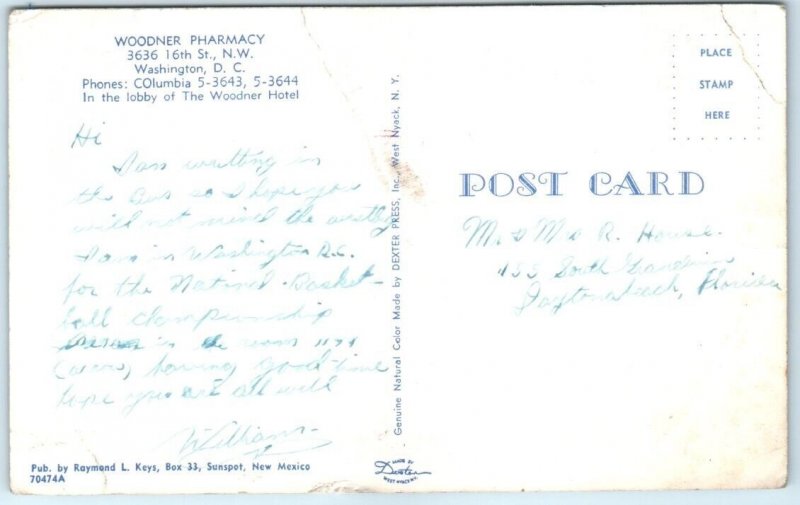 WOODNER PHARMACY
3636 16th St., N.W.
Washington, D. C.
Phones: COlumbia 5-3643, 5-3644
In the lobby of The Woodner Hotel
Hi
I am writting in
the Bus so I hope you
will not mind the
I am in Washington D.C.
for the National Basket-
ball championship
in the room 1174
having good time
hope you are all well
William
Pub. by Raymond L. Keys, Box 33, Sunspot, New Mexico
70474A
Genuine Natural Color Made by DEXTER PRESS, Inc., West Nyack, N. Y.
MADE BY
Dexter
WEST NYACK, N.Y.
PLACE
STAMP
HERE
POST CARD
Mr & Mrs R. House.
155 South
Daytona Beach, Florida